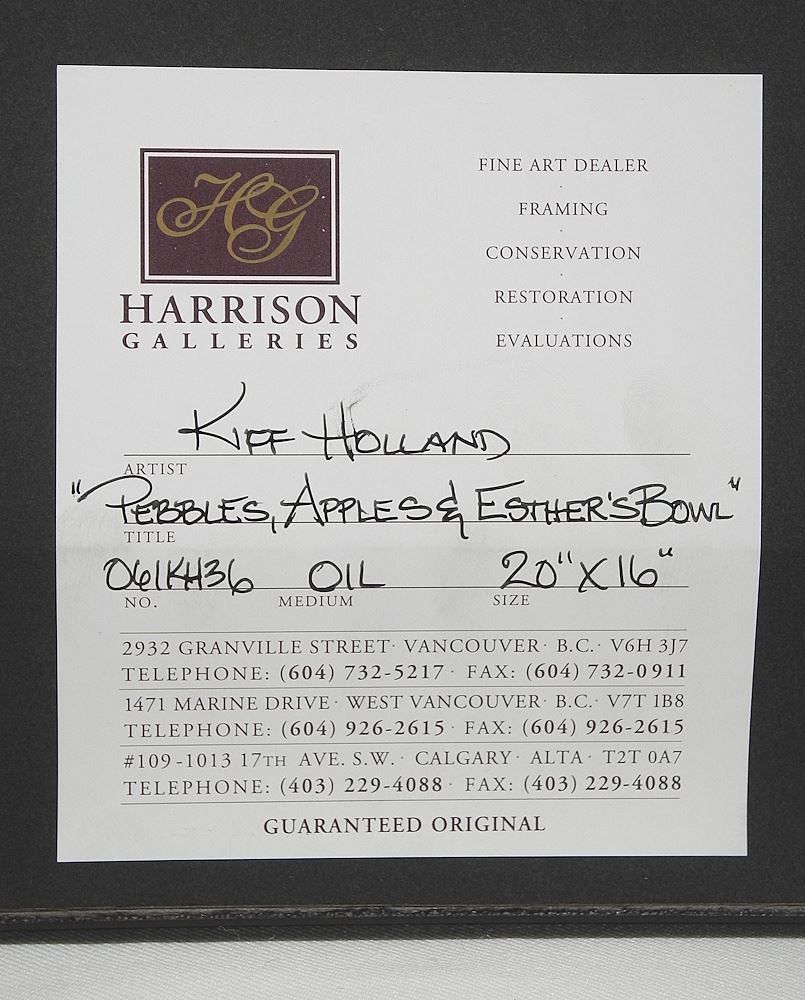 HG
HARRISON
GALLERIES
FINE ART DEALER
·
FRAMING
·
CONSERVATION
·
RESTORATION
·
EVALUATIONS
KIFF HOLLAND
ARTIST
"PEBBLES, APPLES & ESTHER'S BOWL"
TITLE
061KH36 OIL 20" X 16"
NO. MEDIUM SIZE
2932 GRANVILLE STREET· VANCOUVER· B.C.· V6H 3J7
TELEPHONE: (604) 732-5217 · FAX: (604) 732-0911
1471 MARINE DRIVE· WEST VANCOUVER· B.C.· V7T 1B8
TELEPHONE: (604) 926-2615 · FAX: (604) 926-2615
#109-1013 17TH AVE. S.W.· CALGARY· ALTA· T2T 0A7
TELEPHONE: (403) 229-4088 · FAX: (403) 229-4088
GUARANTEED ORIGINAL